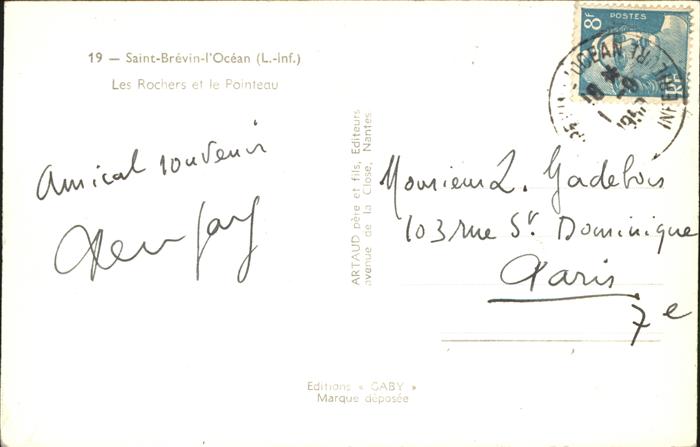 19 — Saint-Brévin-l'Océan (L.-Inf.)
Les Rochers et le Pointeau
Amical souvenir
ARTAUD père et fils, Editeurs
avenue de la Close, Nantes
8F
POSTES
Monsieur L. Gadebois
103 rue St. Dominique
Paris
7e
Editions « GABY »
Marque déposée